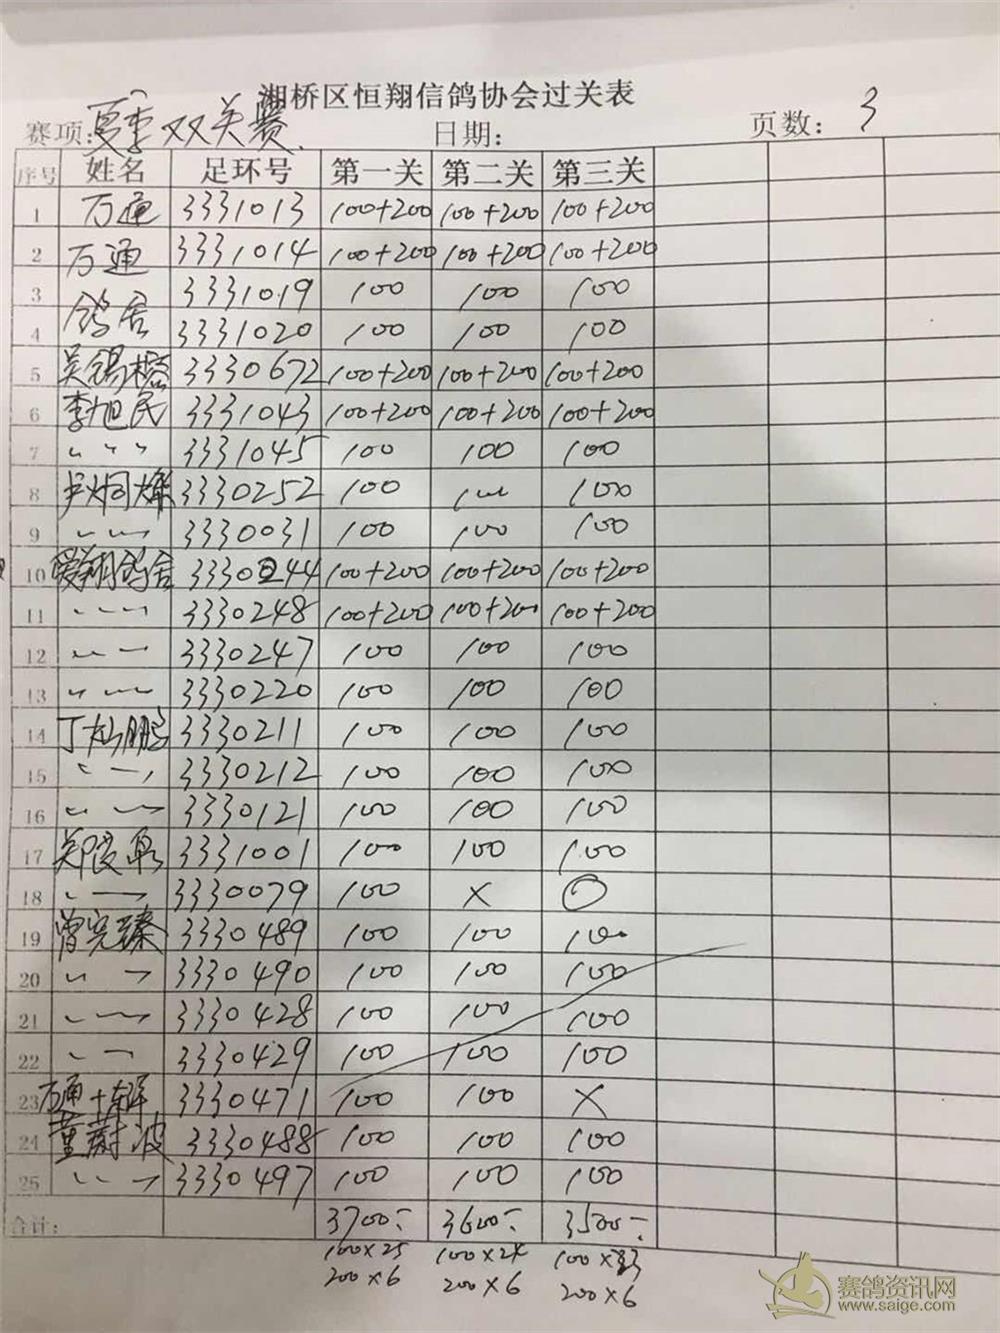 湘桥区恒翔信鸽协会过关表
赛项:夏季双关赛. 日期: 页数: 3
序号 姓名 足环号 第一关 第二关 第三关
1 万通 3331013 100+200 100+200 100+200
2 万通 3331014 100+200 100+200 100+200
3 3331019 100 100 100
鸽舍
4 3331020 100 100 100
5 吴锡 3330672 100+200 100+200 100+200
6 李旭民 3331043 100+200 100+200 100+200
7 〃 〃 3331045 100 100 100
8 3330252 100 100 100
9 〃 〃 3330031 100 100 100
10 爱翔鸽舍 3330244 100+200 100+200 100+200
11 〃 〃 3330248 100+200 100+200 100+200
12 〃 〃 3330247 100 100 100
13 〃 〃 3330220 100 100 100
14 丁灿鹏 3330211 100 100 100
15 〃 〃 3330212 100 100 100
16 〃 〃 3330121 100 100 100
17 3331001 100 100 100
18 〃 〃 3330079 100 ×
19 曾宪臻 3330489 100 100 100
20 〃 〃 3330490 100 100 100
21 〃 〃 3330428 100 100 100
22 〃 〃 3330429 100 100 100
23 万通+ 3330471 100 100 ×
24 董蔚波 3330488 100 100 100
25 〃 〃 3330497 100 100 100
合计: 3700- 3600- 3500-
100×25 100×24 100×23
200×6 200×6 200×6
赛鸽资讯网
www.saige.com